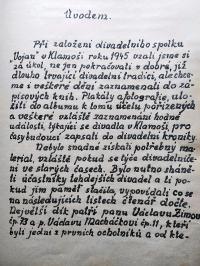 Úvodem.
Při založení divadelního spolku
"Vojan" v Klamoši roku 1945 vzali jsme si
za úkol, ne jen pokračovati v dobré, již
dlouho trvající divadelní tradici, ale chce-
me i veškeré dění zaznamenati do zá-
pisových knih. Plakáty a fotografie, ulo-
žiti do albumu k tomu účelu pořízených
a veškeré zvláště zaznamenání hodné
události, týkající se divadla v Klamoši, pro
časy budoucí zapsati do divadelní kroniky.
Nebylo snadné získati potřebný ma-
teriál, zvláště pokud se týče divadelniče-
ní ve starých časech. Bylo nutno sháně-
ti účastníky tehdejších divadel a ti po-
kud jim paměť stačila, vypovídali co se
na následujících listech čtenář dočte.
Největší dík patří panu Václavu Zimovi
čp. 13 a p. Václavu Macháčkovi čp. 11, kteří
byli jedni z prvních ochotníků a od kte-